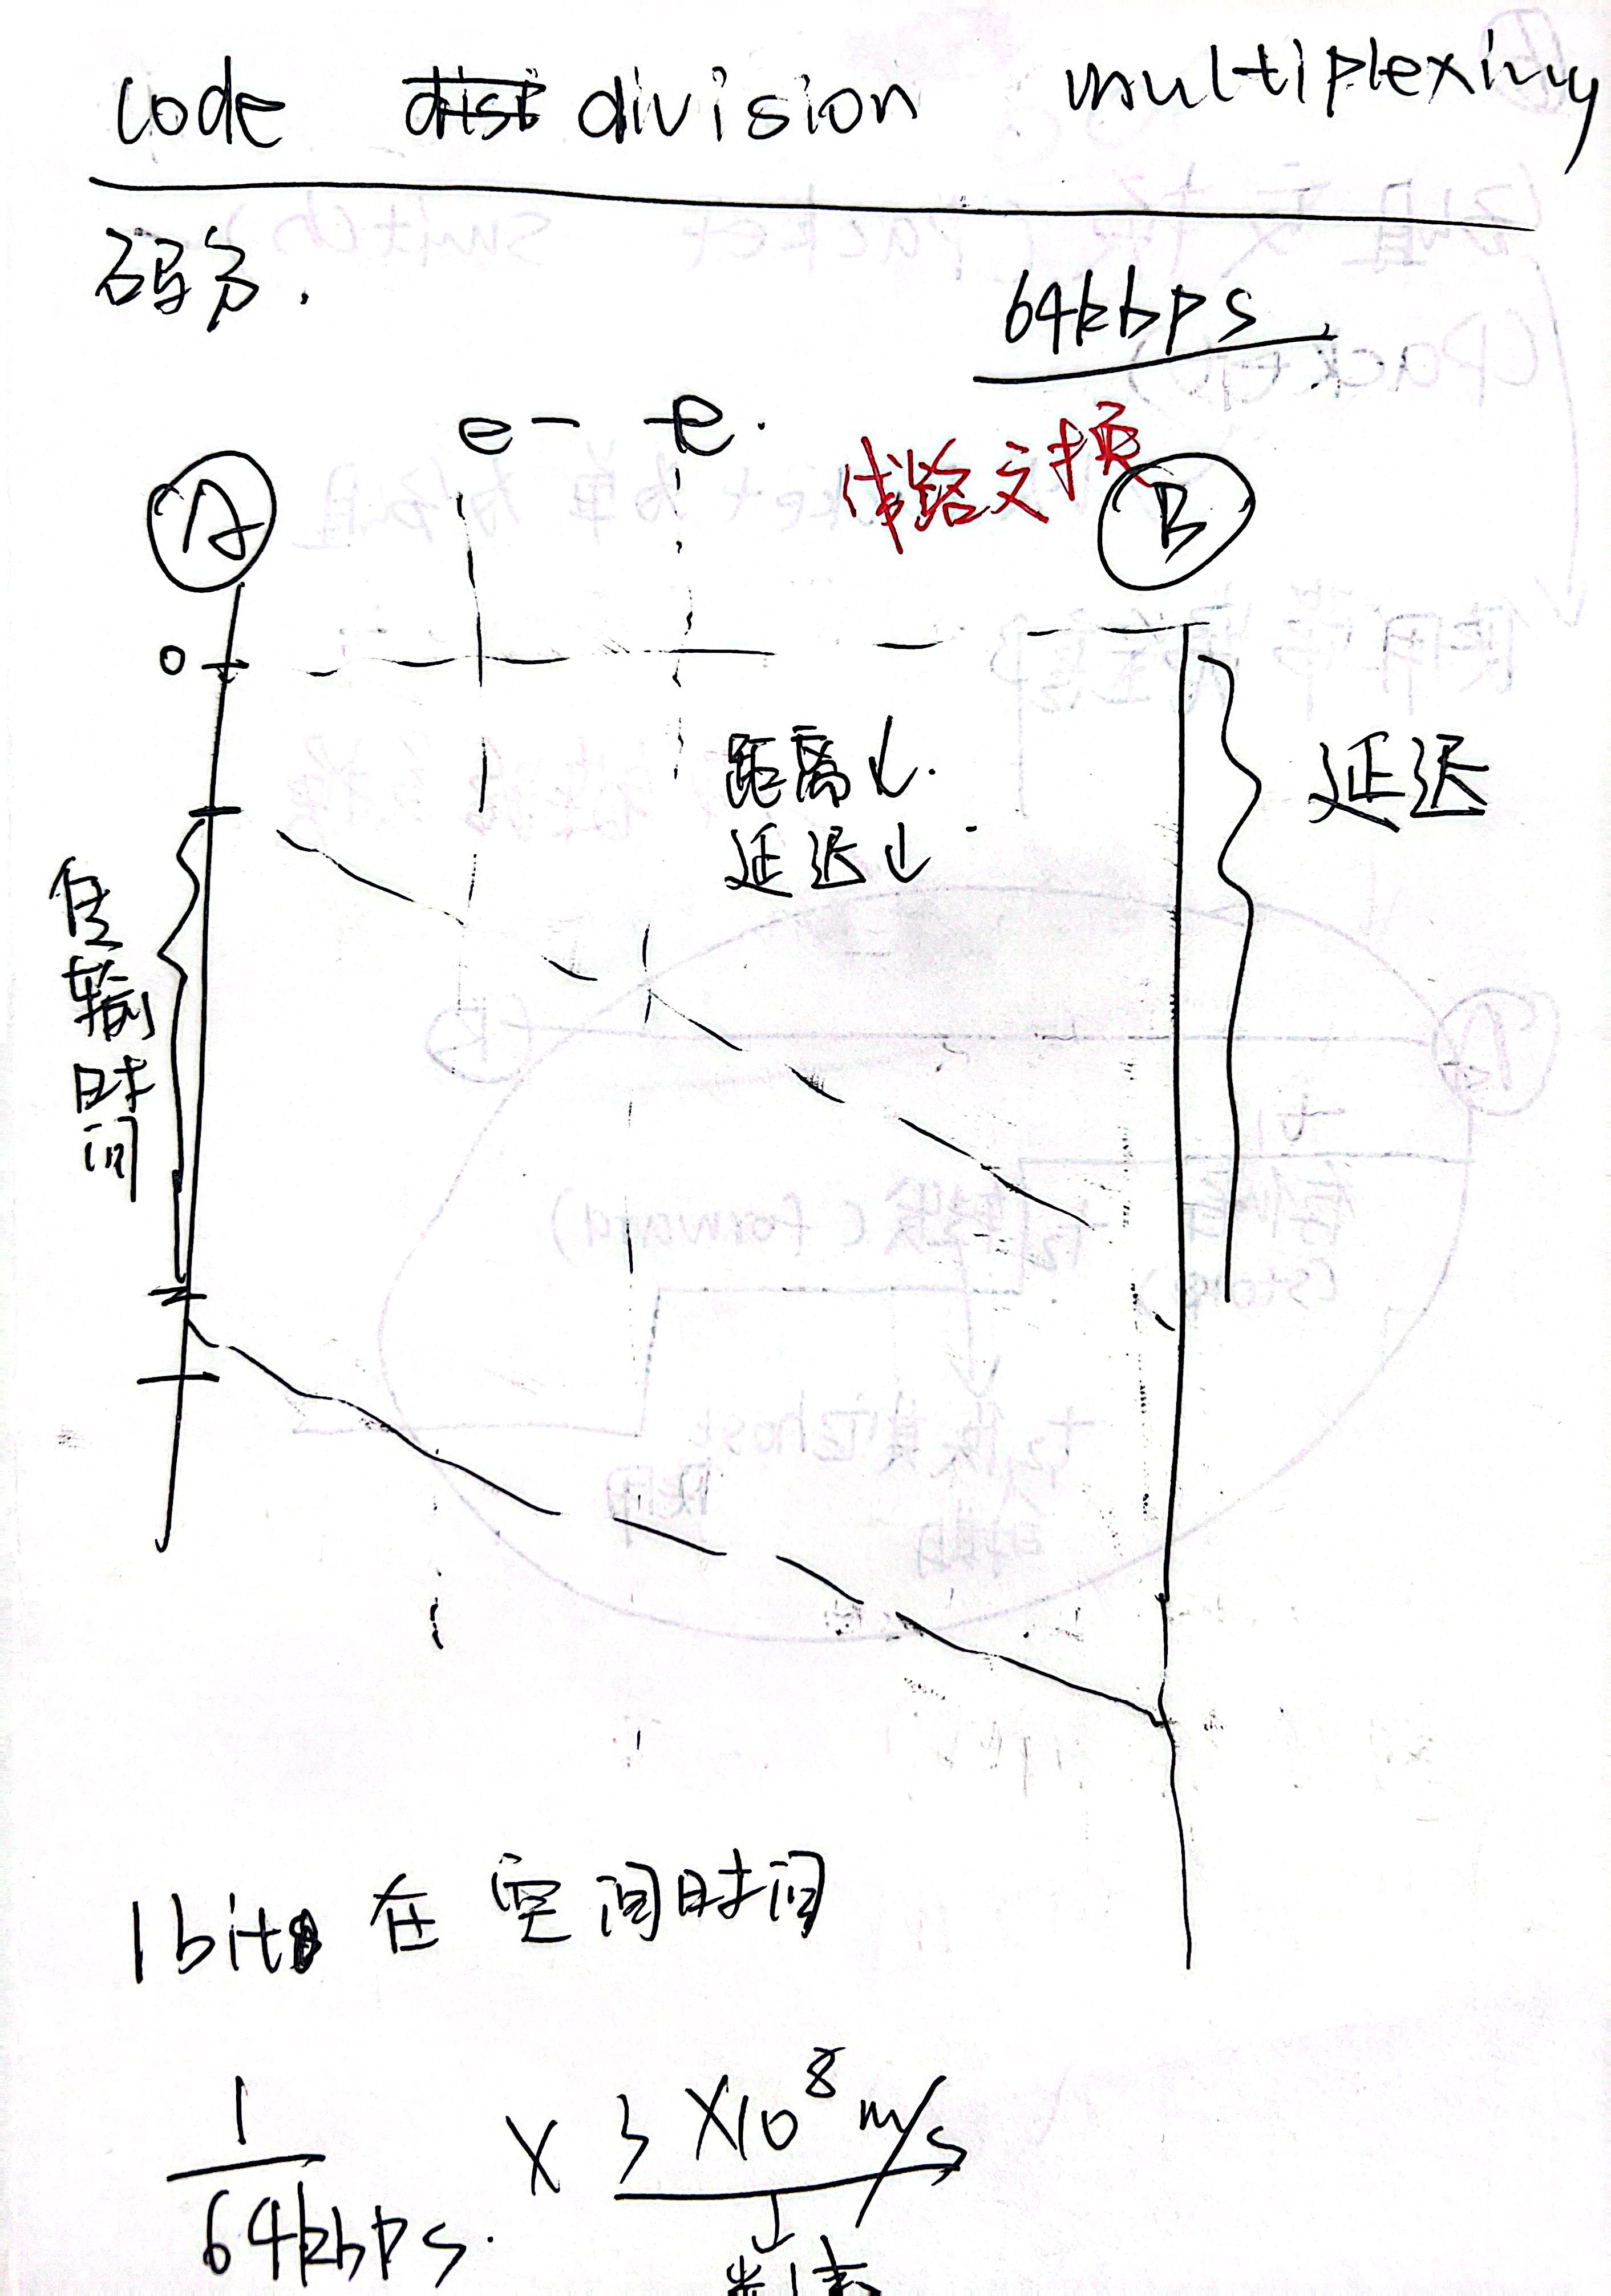 code division multiplexing
码分.
64kbps
e- e.
A
B
0
距离↓.
延迟↓
延迟
传输时间
1bit 在空间时间
1/64kbps. × 3×10⁸ m/s
↓
光速